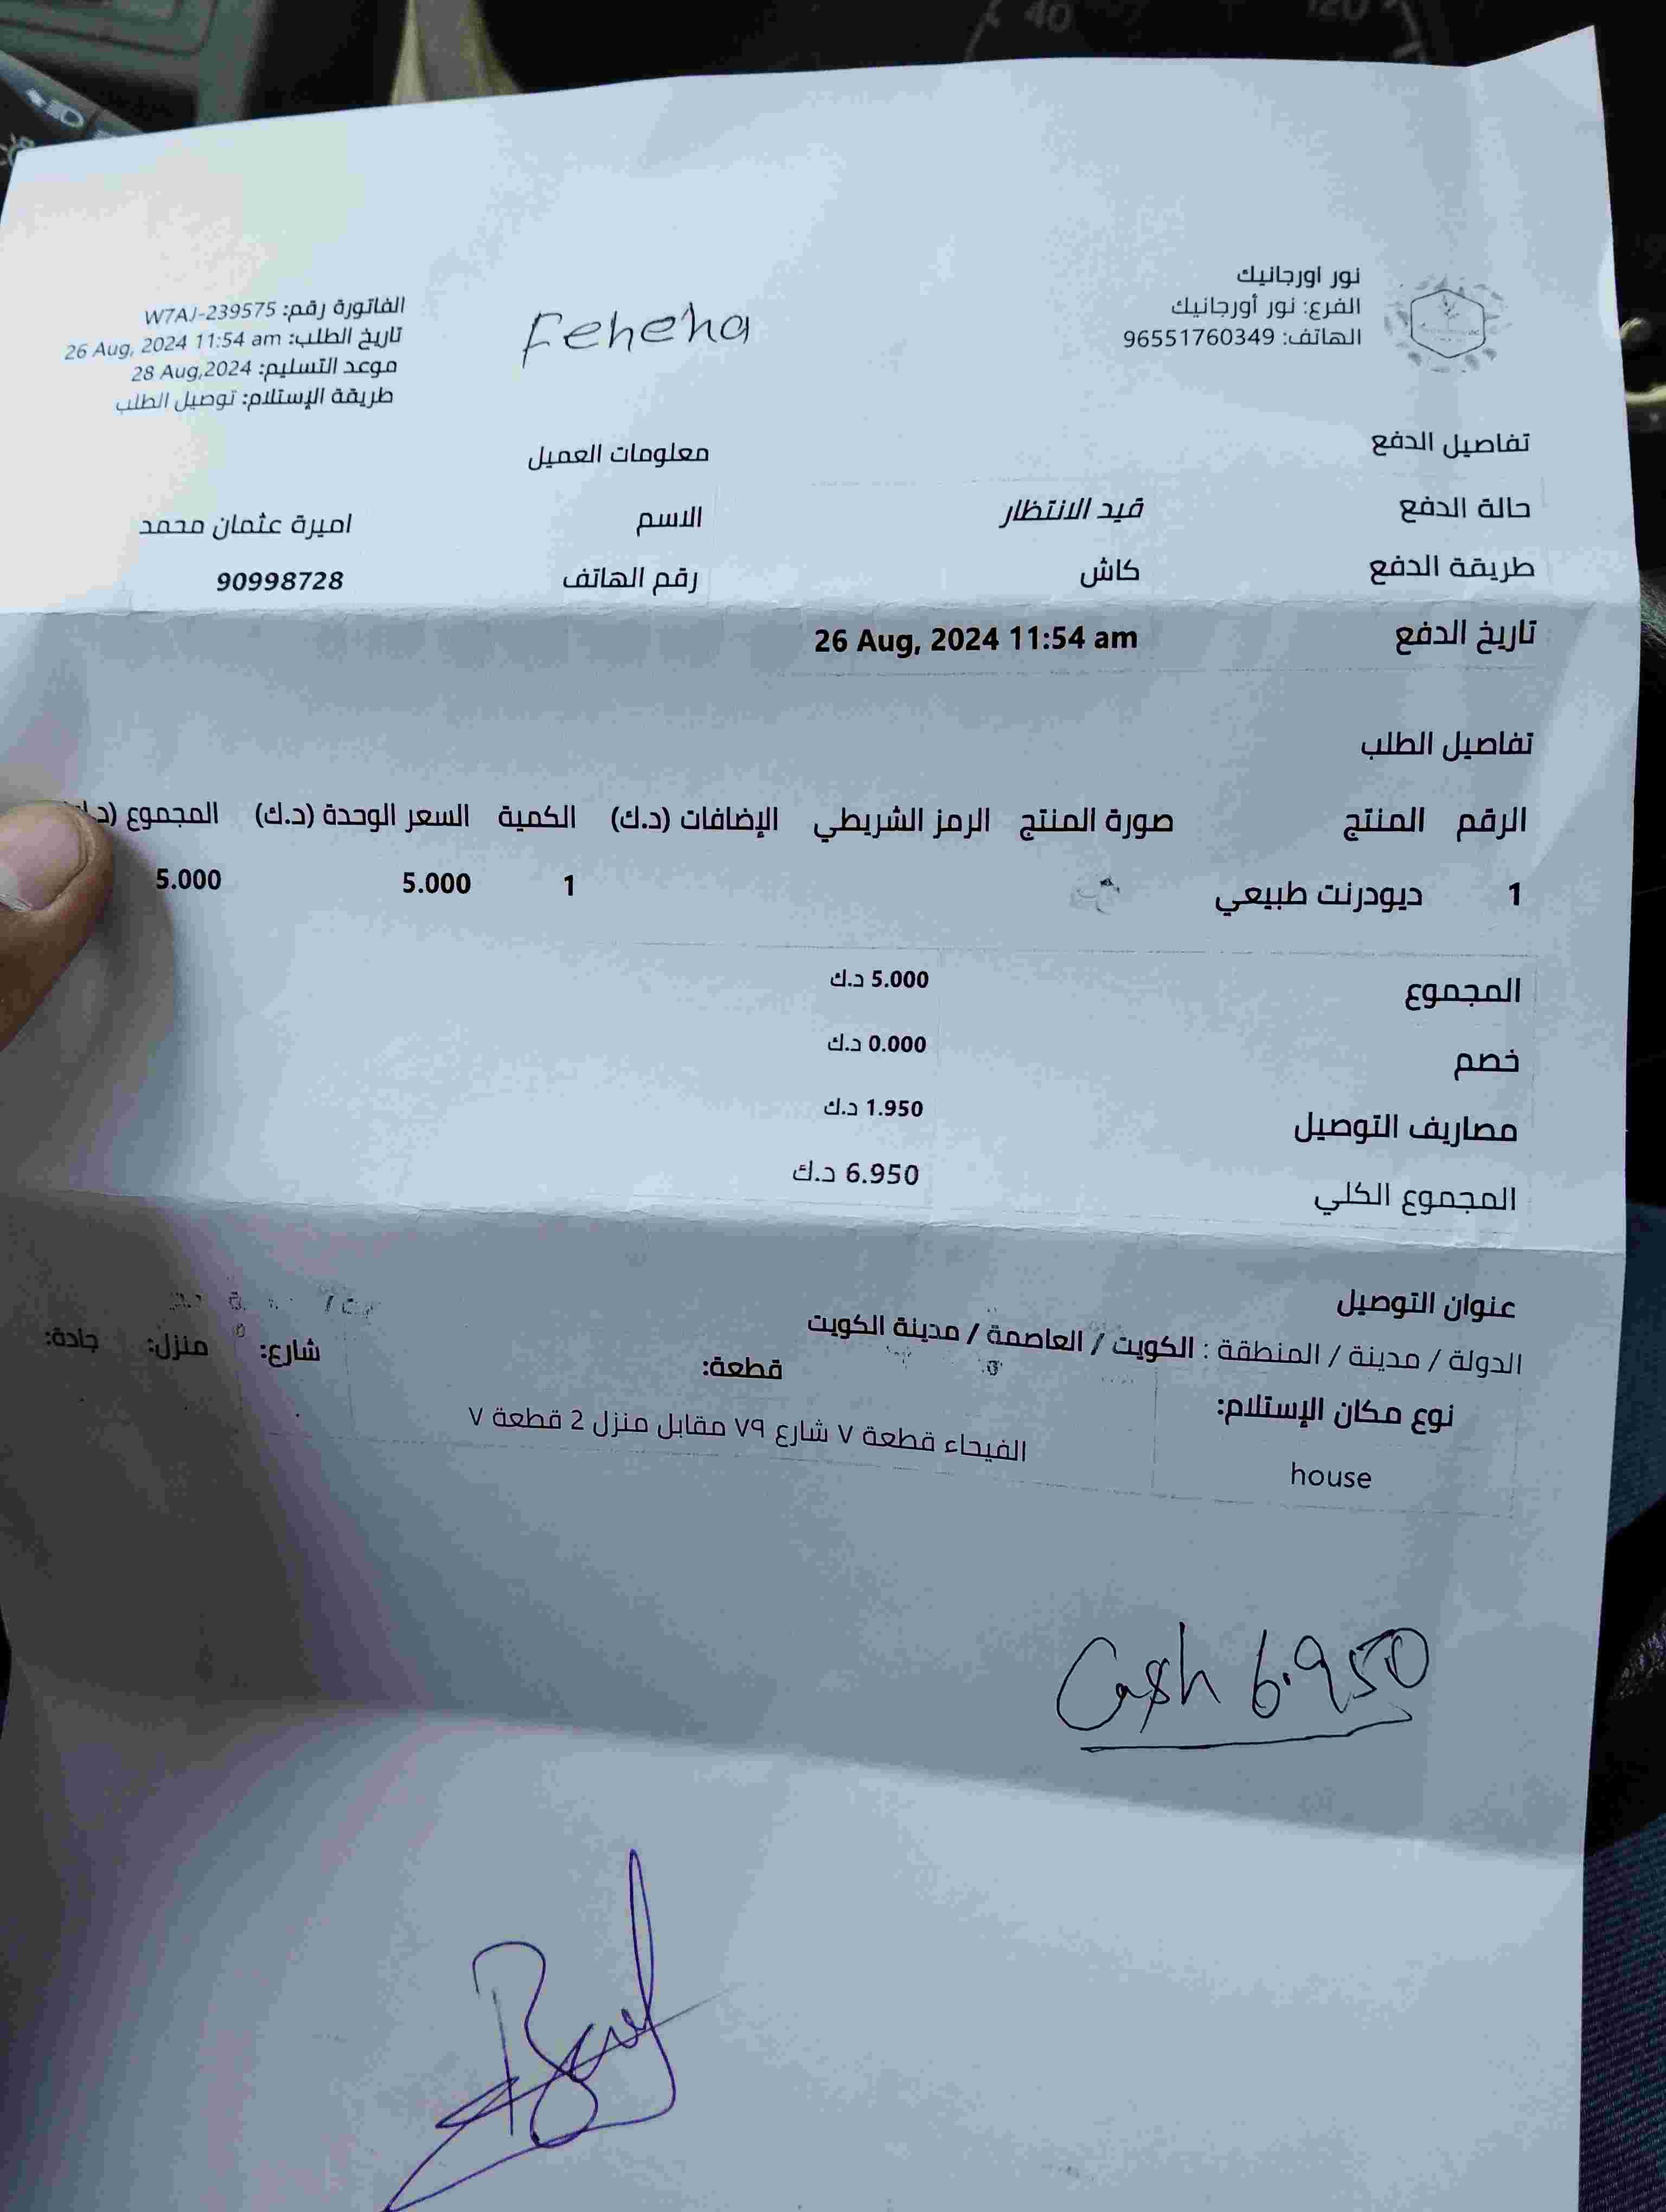 نور اورجانيك
الفرع: نور أورجانيك
الهاتف: 96551760349
Feheha
الفاتورة رقم: W7AJ-239575
تاريخ الطلب: 26 Aug, 2024 11:54 am
موعد التسليم: 28 Aug,2024
طريقة الإستلام: توصيل الطلب
تفاصيل الدفع
حالة الدفع قيد الانتظار
طريقة الدفع كاش
تاريخ الدفع 26 Aug, 2024 11:54 am
معلومات العميل
الاسم اميرة عثمان محمد
رقم الهاتف 90998728
تفاصيل الطلب
الرقم المنتج صورة المنتج الرمز الشريطي الإضافات (د.ك) الكمية السعر الوحدة (د.ك) المجموع
1 ديودرنت طبيعي 1 5.000 5.000
المجموع 5.000 د.ك
خصم 0.000 د.ك
مصاريف التوصيل 1.950 د.ك
المجموع الكلي 6.950 د.ك
عنوان التوصيل
الدولة / مدينة / المنطقة : الكويت / العاصمة / مدينة الكويت
نوع مكان الإستلام: قطعة: شارع: منزل: جادة:
house الفيحاء قطعة ٧ شارع ٧٩ مقابل منزل 2 قطعة ٧
Cash 6.950